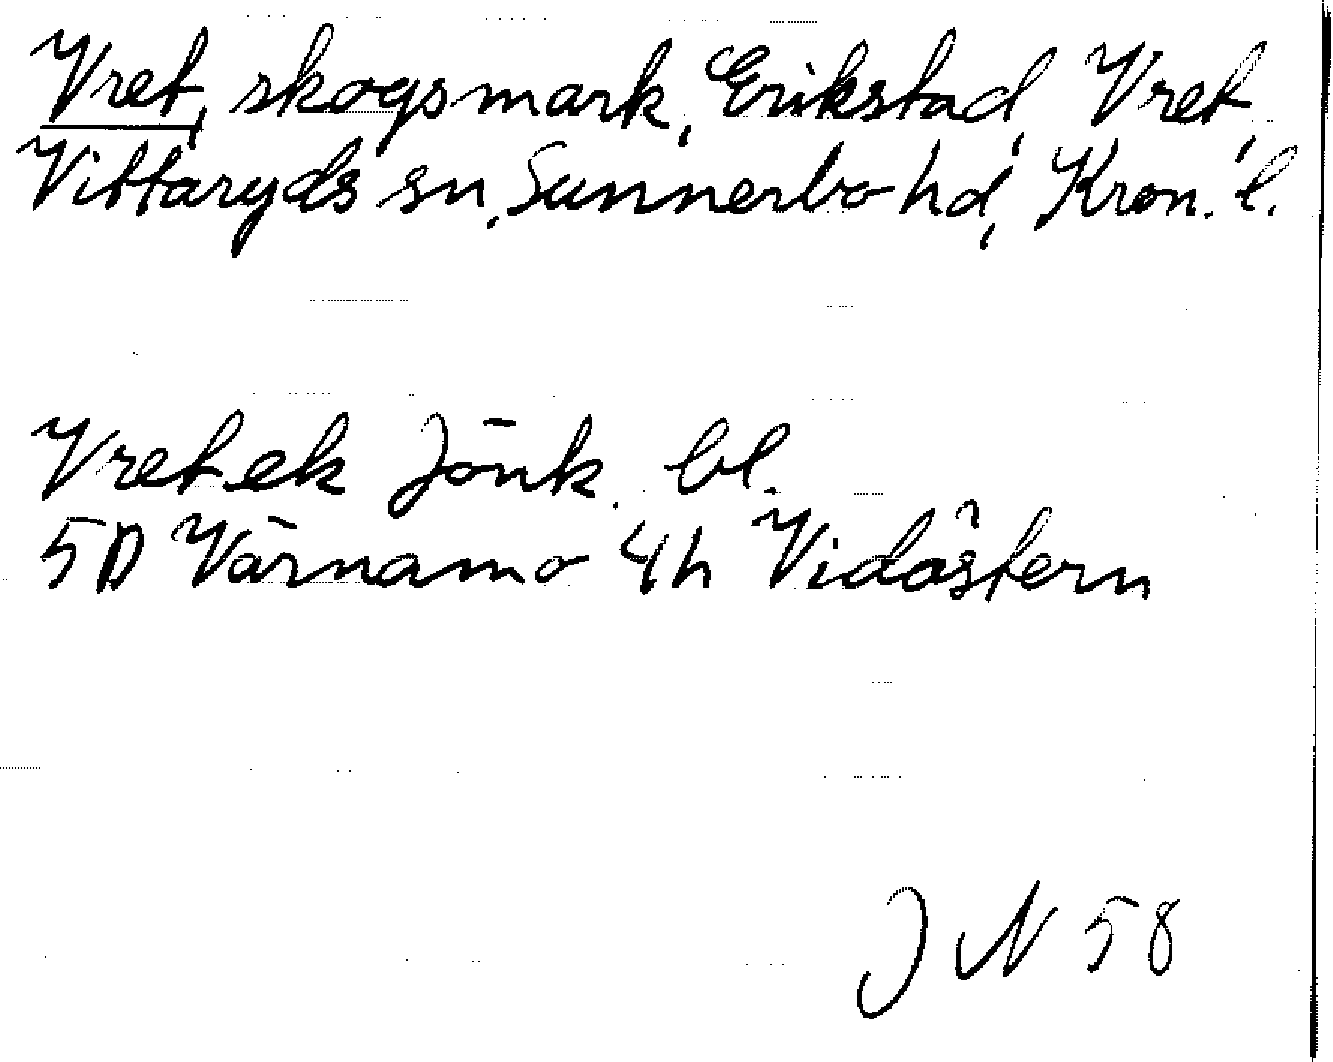 Vret, skogsmark, Erikstad, Vret,
Vittaryds sn, Sunnerbo hd, Kron. l.
Vret ek Jönk. bl.
5D Värnamo 4h Vidöstern
J N 58